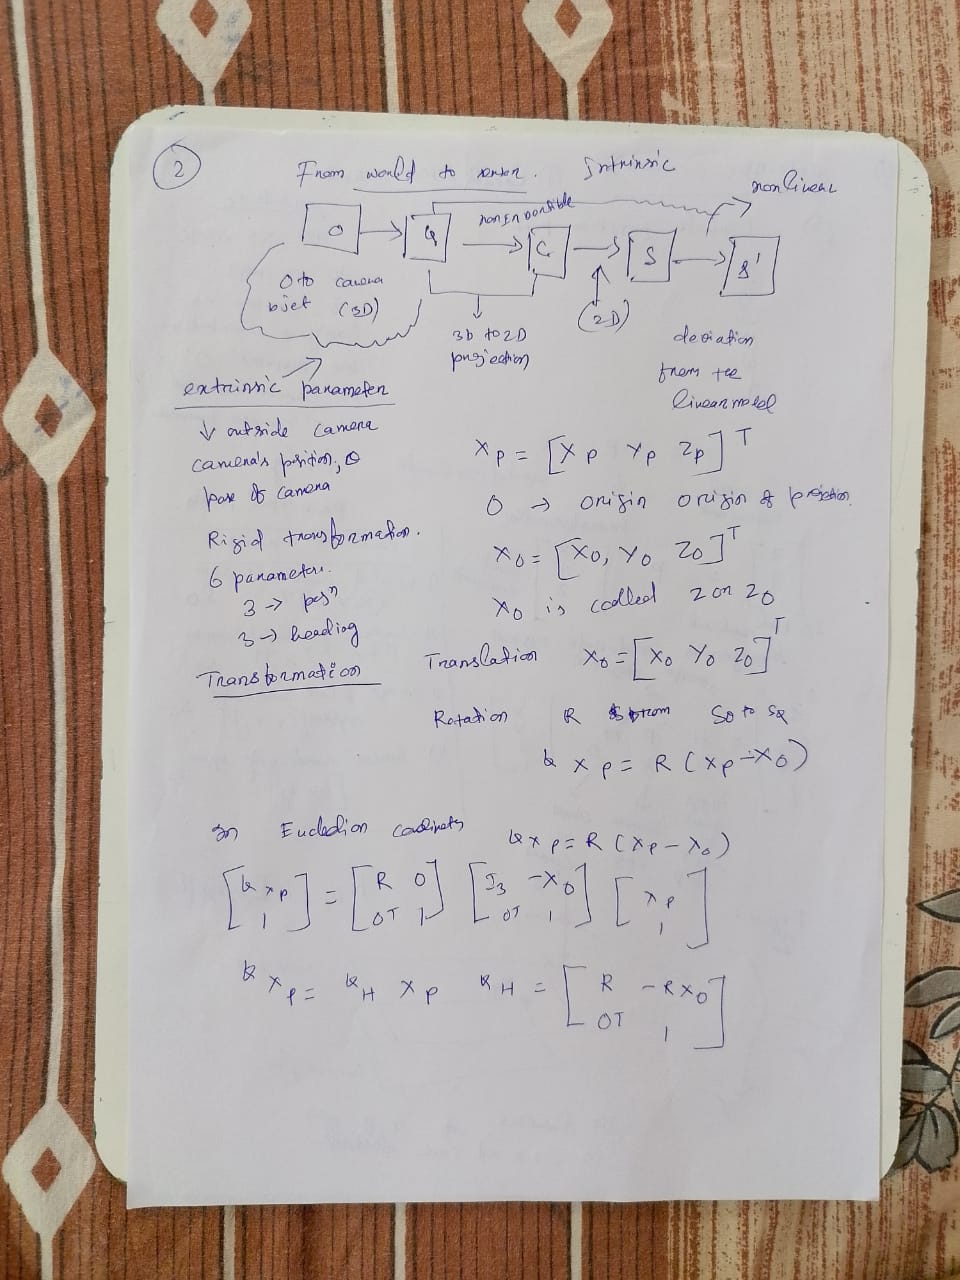 2
From world to sensor. Intrinsic
nonlinear
noninvertible
O → → C → S → S'
O to camera
bjet (3D)
3D to 2D
projection
(2D)
deviation
from tee
linear model
extrinsic parameter
↓ outside camera
camera's position,
pose of camera
Rigid transformation.
6 parameters.
3 → posn
3 → heading
Transformation
Xp = [Xp Yp Zp]T
O → origin origin of projection
X0 = [X0, Y0 Z0]T
X0 is called Z or Z0
Translation X0 = [X0 Y0 Z0]T
Rotation R from So to Sk
k Xp = R (Xp - X0)
In Eucledion coordinates k Xp = R (Xp - X0)
[k Xp 1] = [R 0 0T 1] [I3 -X0 0T 1] [Xp 1]
k Xp = k H Xp k H = [R -RX0 0T 1]